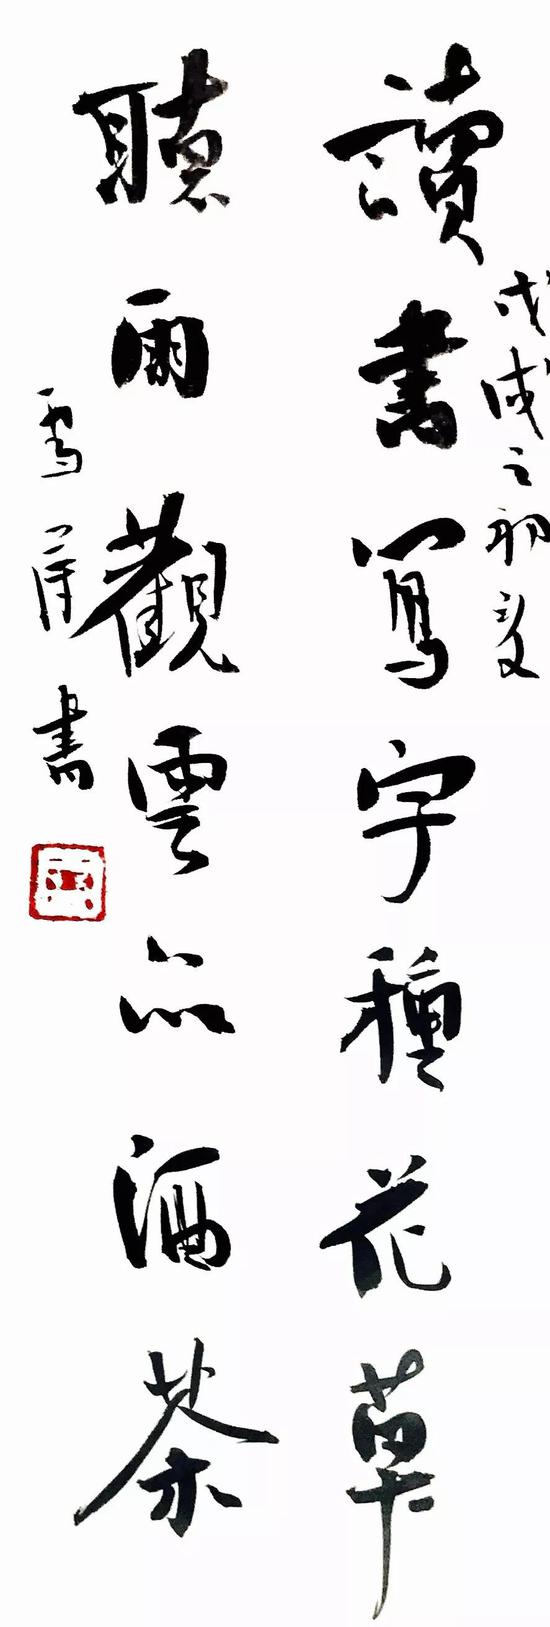 戊戌之初夏
讀書寫字種花草
聽雨觀雲品酒茶
書